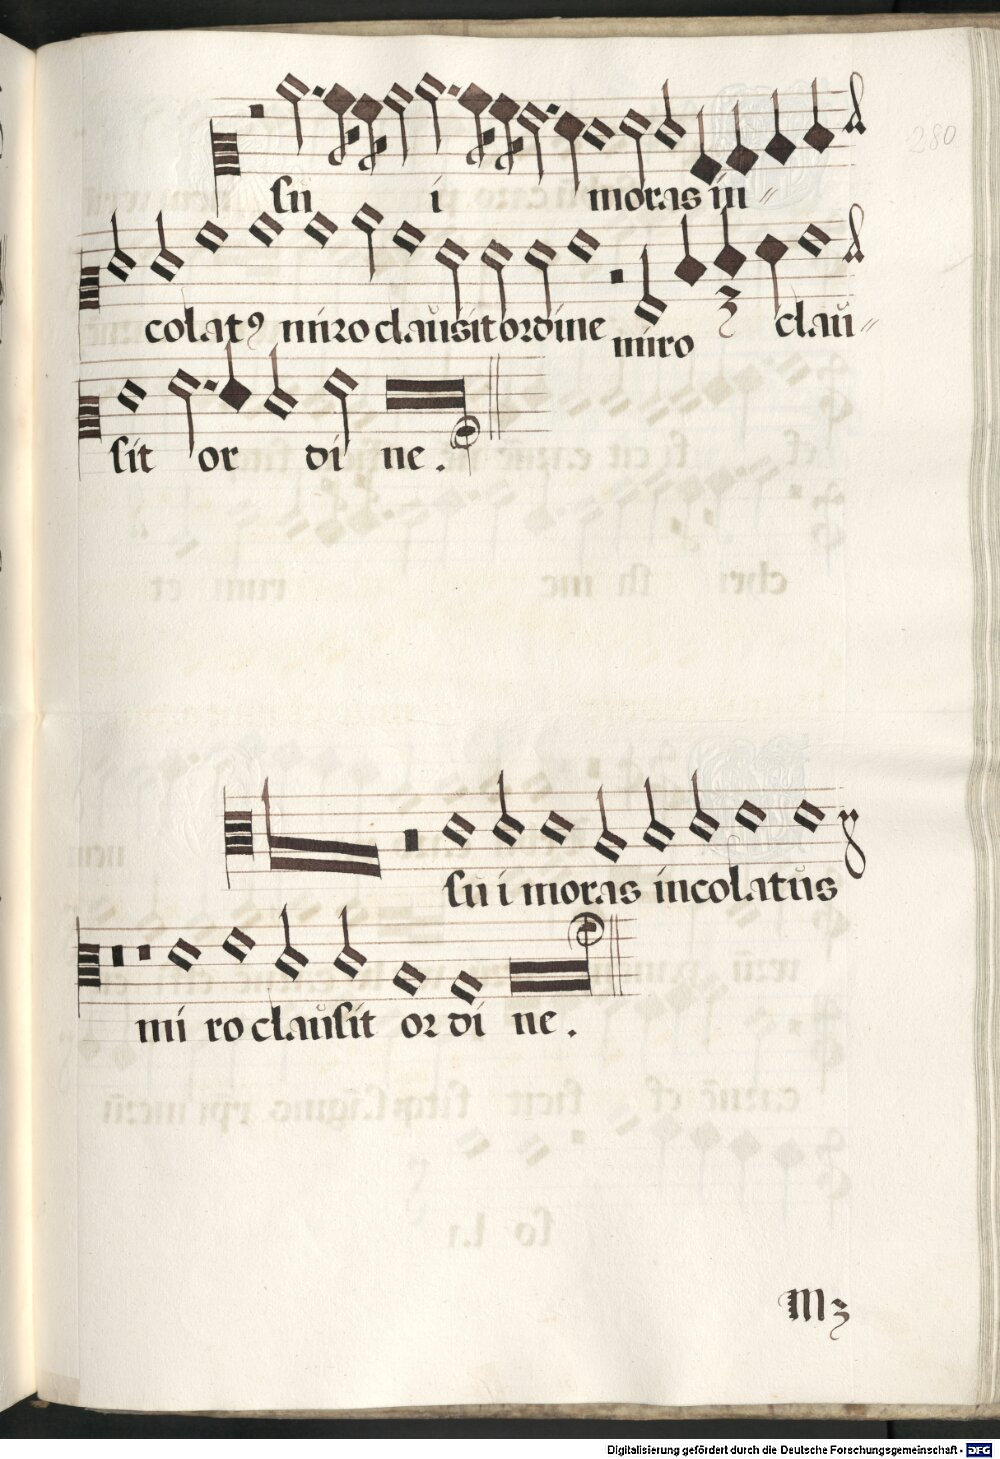 280
sū i moras in⸗
colatꝰ miro claūsit ordine miro ʒ claū⸗
sit or di ne .
sū i moras incolatūs
mi ro claūsit or di ne .
Mʒ
Digitalisierung gefördert durch die Deutsche Forschungsgemeinschaft - DFG